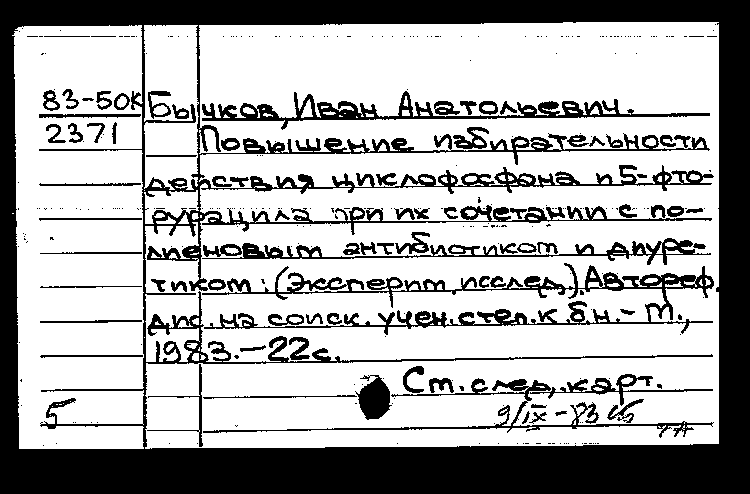 83-50К Бычков, Иван Анатольевич.
2371 Повышение избирательности
действия циклофосфана и 5-фто-
рурацила при их сочетании с по-
лиеновым антибиотиком и диуре-
тиком: (Эксперим. исслед.). Автореф.
дис. на соиск. учен. степ. к. б. н. - М.,
1983. - 22 с.
См. след. карт.
5 9/IX-83